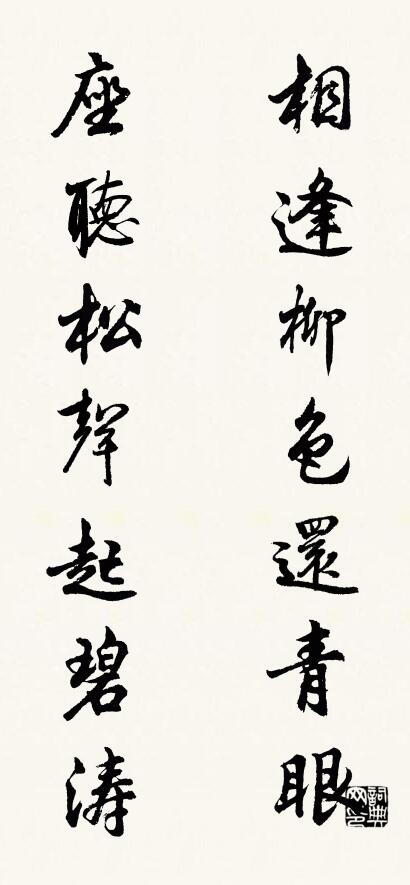 相逢柳色還青眼
座聽松聲起碧濤
詞典网